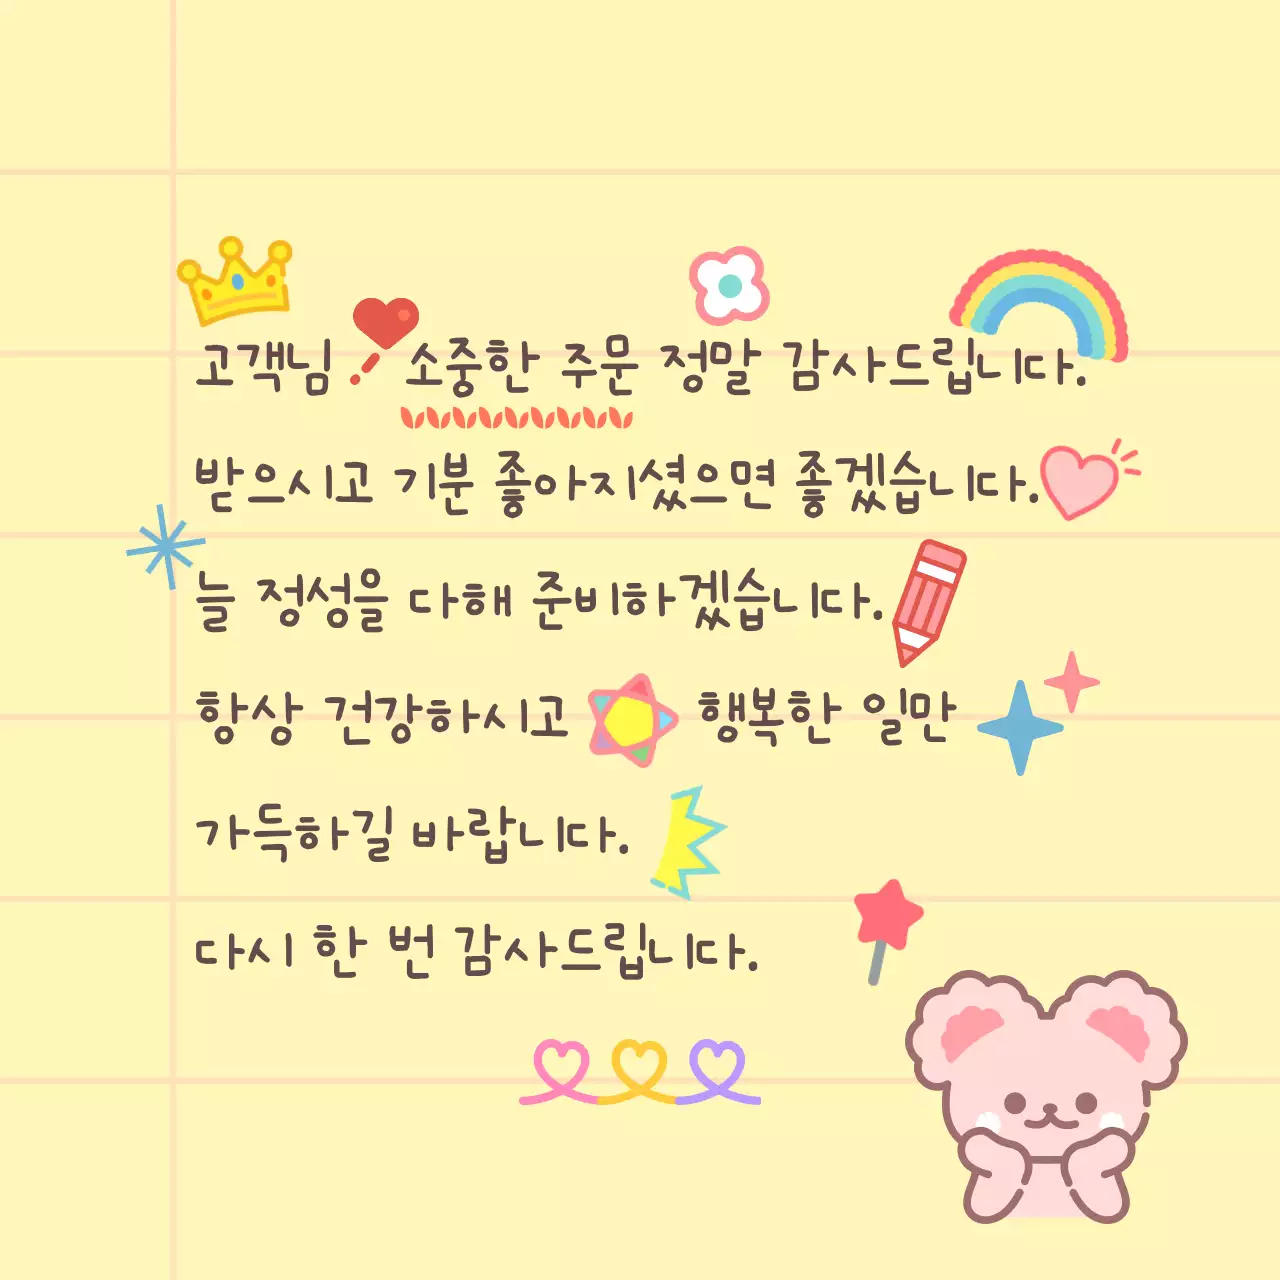 고객님 소중한 주문 정말 감사드립니다.
받으시고 기분 좋아지셨으면 좋겠습니다.
늘 정성을 다해 준비하겠습니다.
항상 건강하시고 행복한 일만
가득하길 바랍니다.
다시 한 번 감사드립니다.